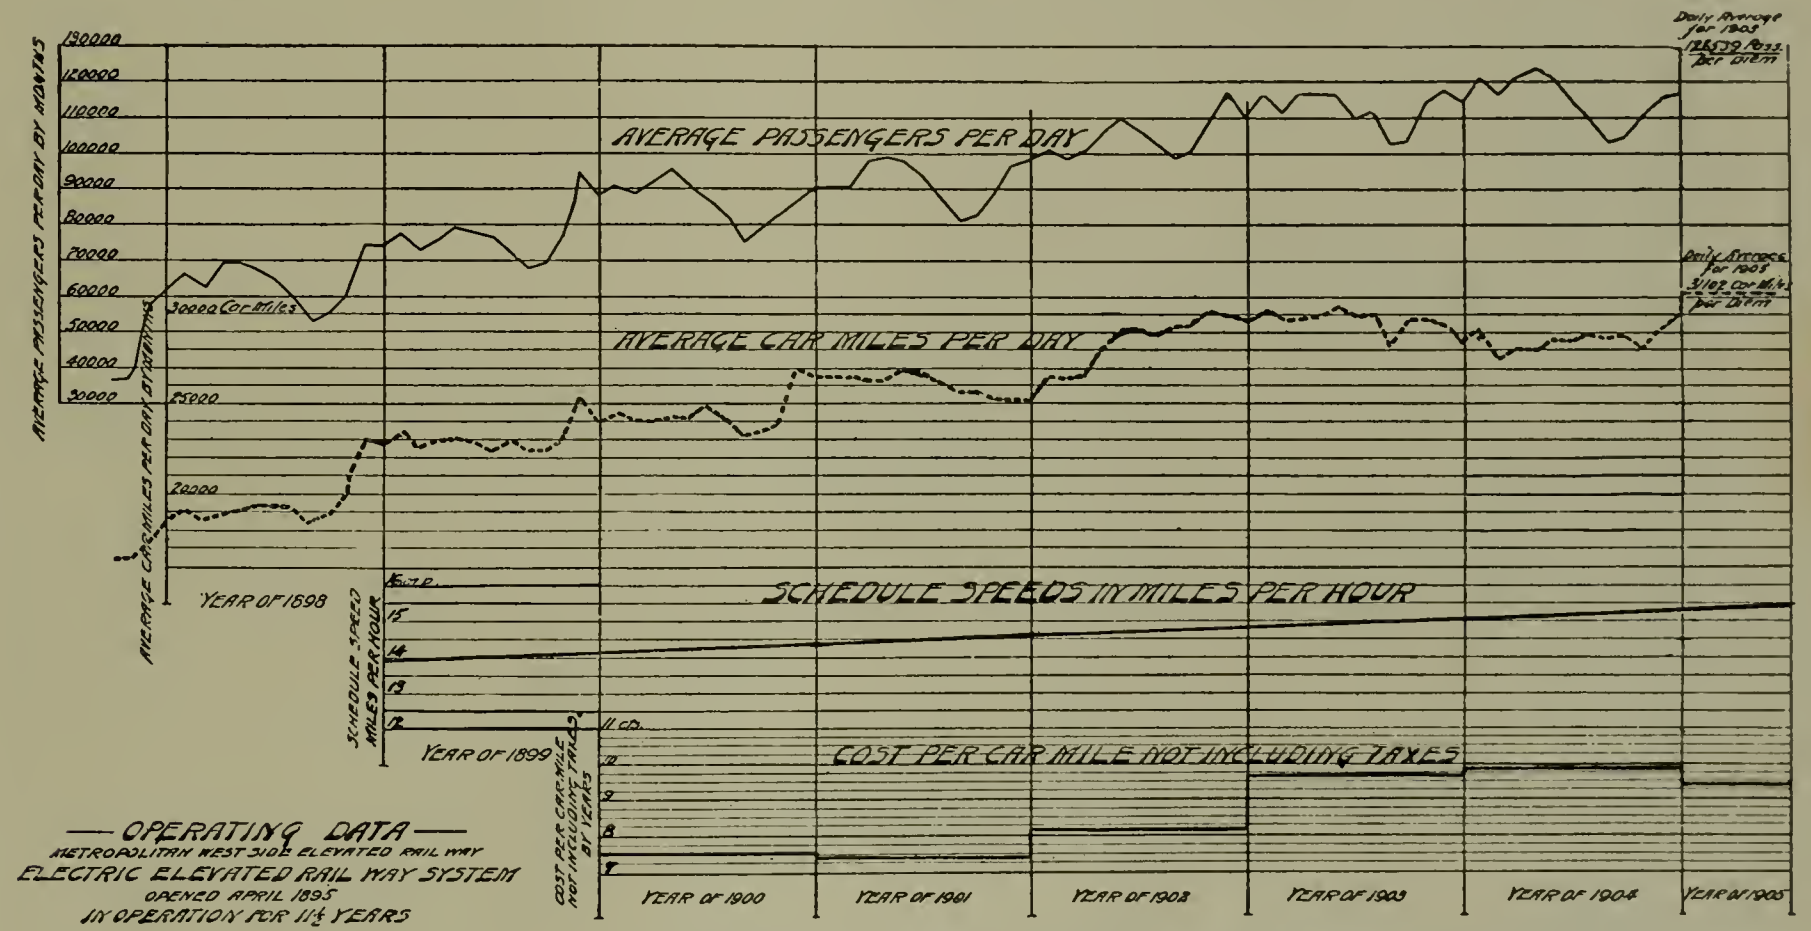 Daily Average
for 1905
128539 Pass.
per Diem
AVERAGE PASSENGERS PER DAY BY MONTHS
130000
120000
110000
100000
90000
80000
70000
60000
50000
40000
30000
AVERAGE PASSENGERS PER DAY
Daily Average
for 1905
31102 Car Miles
per Diem
AVERAGE CAR MILES PER DAY BY MONTHS
30000 Car Miles
25000
20000
AVERAGE CAR MILES PER DAY
YEAR OF 1898
SCHEDULE SPEED
MILES PER HOUR
16
15
14
13
12
SCHEDULE SPEEDS IN MILES PER HOUR
YEAR OF 1899
COST PER CAR MILE
NOT INCLUDING TAXES
BY YEARS
11 cts.
10
9
8
7
COST PER CAR MILE NOT INCLUDING TAXES
YEAR OF 1900
YEAR OF 1901
YEAR OF 1902
YEAR OF 1903
YEAR OF 1904
YEAR OF 1905
— OPERATING DATA —
METROPOLITAN WEST SIDE ELEVATED RAIL WAY
ELECTRIC ELEVATED RAIL WAY SYSTEM
OPENED APRIL 1895
IN OPERATION FOR 11½ YEARS